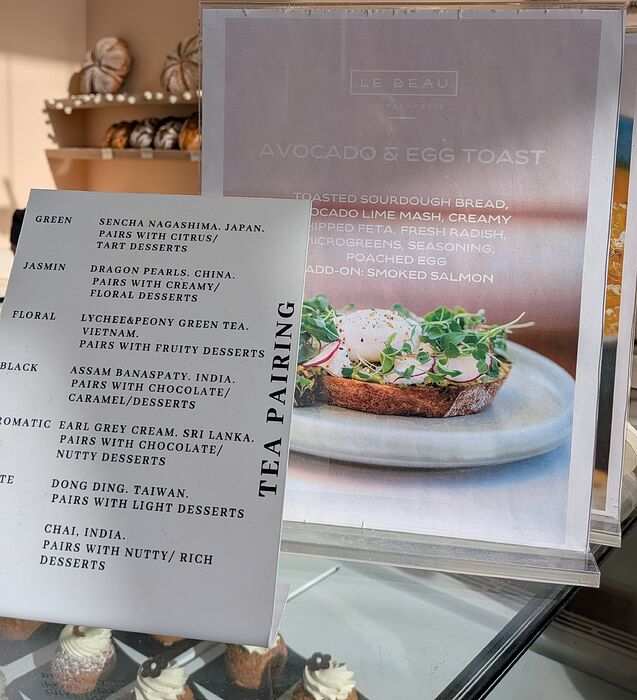 LE BEAU
AVOCADO & EGG TOAST
TOASTED SOURDOUGH BREAD,
OCADO LIME MASH, CREAMY
HIPPED FETA, FRESH RADISH,
MICROGREENS, SEASONING,
POACHED EGG
ADD-ON: SMOKED SALMON
GREEN SENCHA NAGASHIMA. JAPAN.
PAIRS WITH CITRUS/
TART DESSERTS
JASMIN DRAGON PEARLS. CHINA.
PAIRS WITH CREAMY/
FLORAL DESSERTS
FLORAL LYCHEE&PEONY GREEN TEA.
VIETNAM.
PAIRS WITH FRUITY DESSERTS
BLACK ASSAM BANASPATY. INDIA.
PAIRS WITH CHOCOLATE/
CARAMEL/DESSERTS
ROMATIC EARL GREY CREAM. SRI LANKA.
PAIRS WITH CHOCOLATE/
NUTTY DESSERTS
TE DONG DING. TAIWAN.
PAIRS WITH LIGHT DESSERTS
CHAI, INDIA.
PAIRS WITH NUTTY/ RICH
DESSERTS
TEA PAIRING